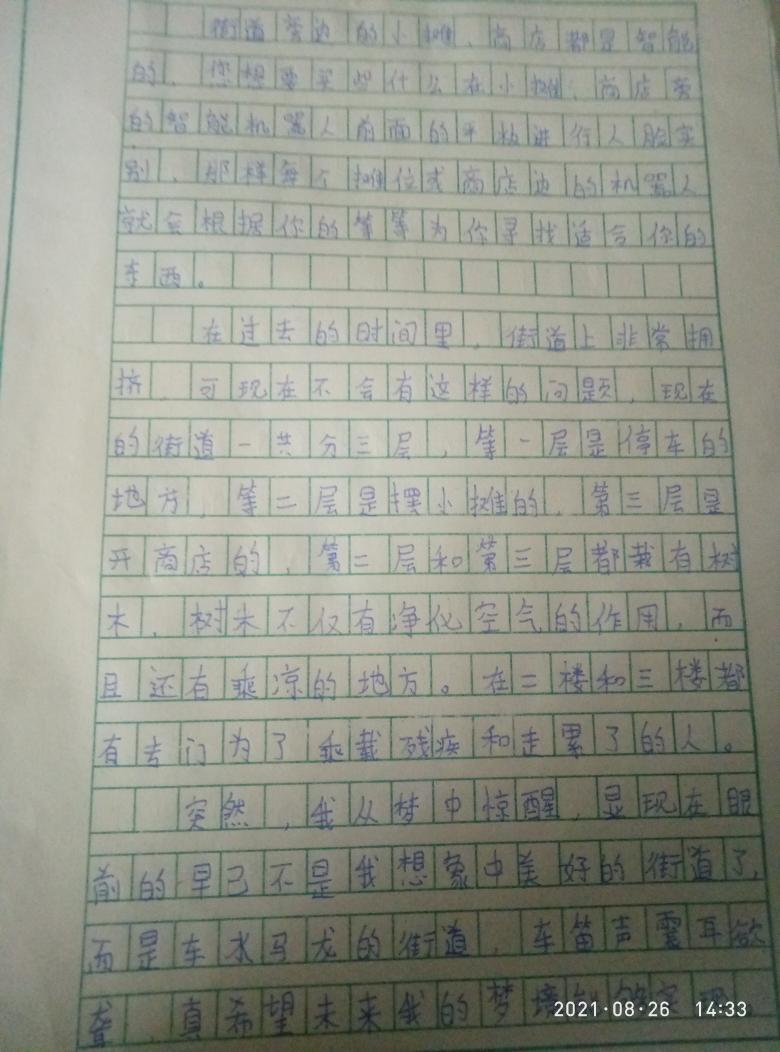 街道旁边的小摊、商店都是智能
的,您想要买些什么在小摊、商店旁
的智能机器人前面的平板进行人脸实
别,那样每个摊位或商店边的机器人
就会根据你的等等为你寻找适合你的
东西。
在过去的时间里,街道上非常拥
挤,可现在不会有这样的问题,现在
的街道一共分三层,等一层是停车的
地方,等二层是摆小摊的,第三层是
开商店的,第二层和第三层都栽有树
木,树木不仅有净化空气的作用,而
且还有乘凉的地方。在二楼和三楼都
有专门为了乘载残疾和走累了的人。
突然,我从梦中惊醒,显现在眼
前的早已不是我想象中美好的街道了,
而是车水马龙的街道,车笛声震耳欲
聋,真希望未来我的梦境
2021·08·26 14:33